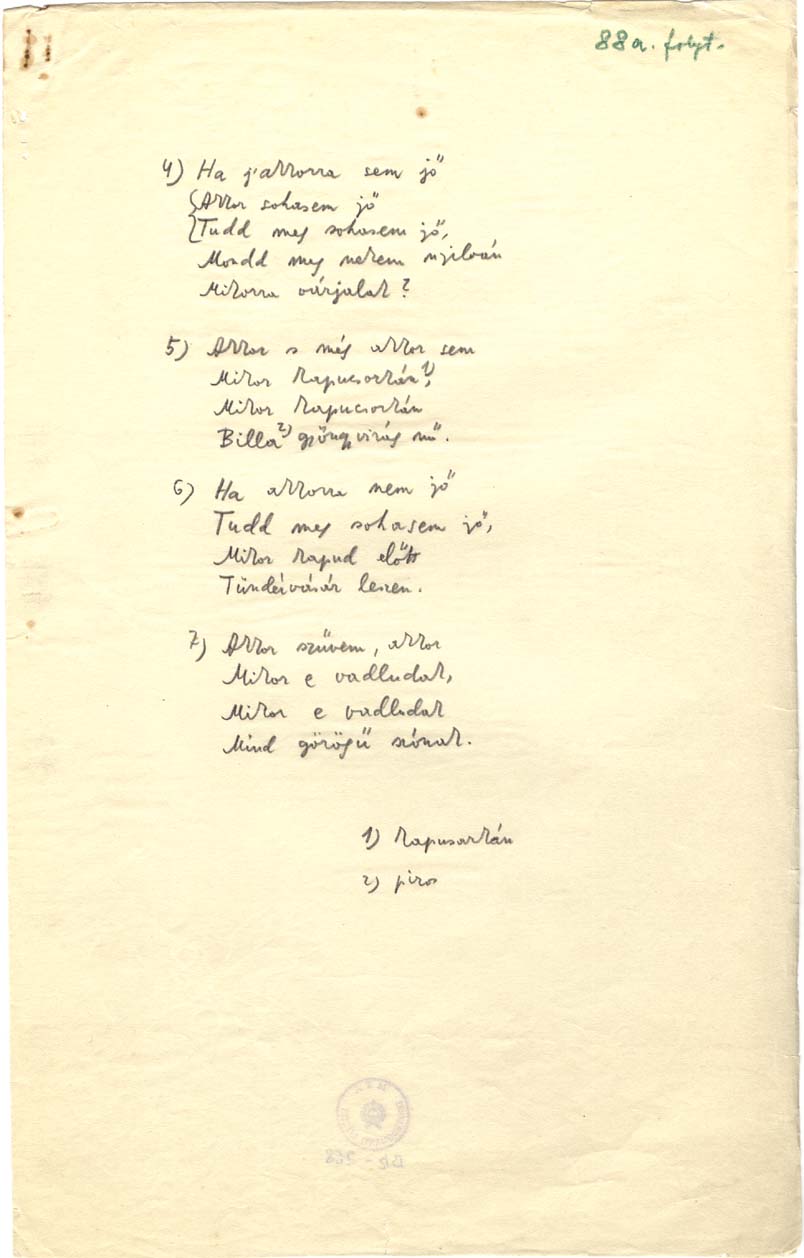 88a. folyt.
4) Ha j'akkorra sem jő
Akkor sohasem jő
Tudd meg sohasem jő,
Mondd meg nekem nyilván
Mikorra várjalak?
5) Akkor s még akkor sem
Mikor kapucsorkán¹⁾,
Mikor kapucsorkán
Billa²⁾ gyöngyvirág nő.
6) Ha akkorra nem jő
Tudd meg sohasem jő,
Mikor kapud előtt
Tündérvásár leszen.
7) Akkor szűvem, akkor
Mikor e vadludak,
Mikor e vadludak
Mind görögű szónak.
1) kapusarkán
2) piros